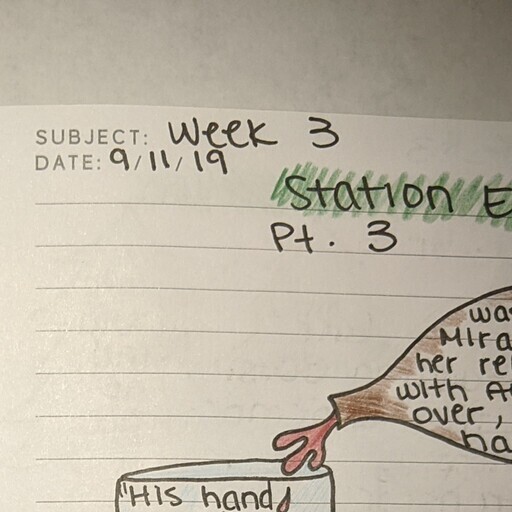 SUBJECT: Week 3
DATE: 9/11/19
Station E
Pt. 3
wa
Mira
her re
with A
over,
ha
"His hand